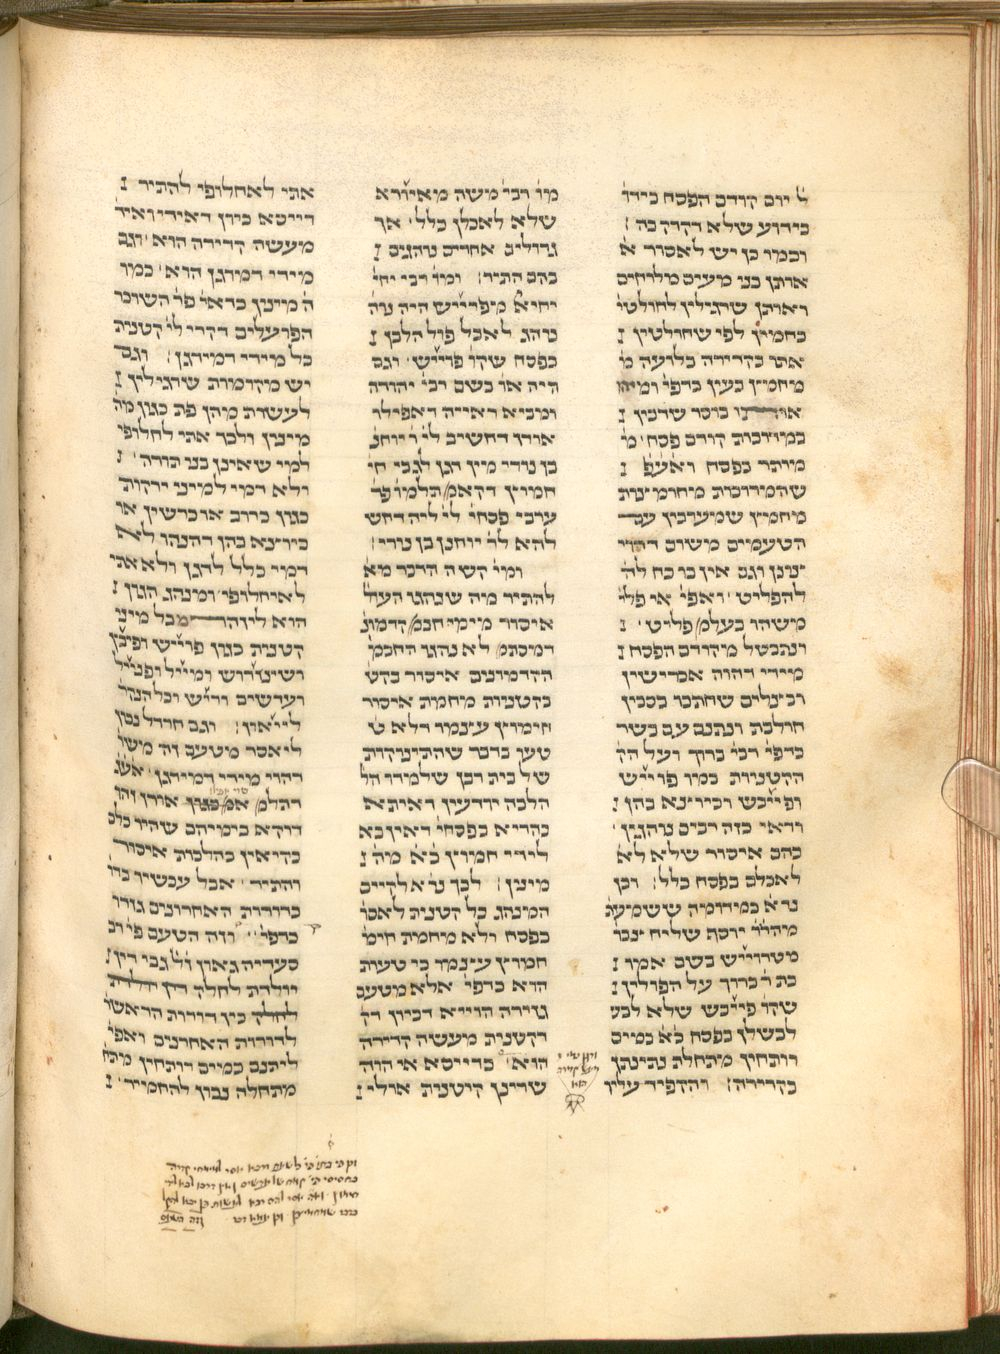 ל יום קודם הפסח כידו׳
כידוע שלא דקדק בה׃
וכמו כן יש לאסור א
אותן בני מעים מלוחים
ואותן שרגילין לחולטי׳
בחמין לפי שחולטין נ
אתו בקדירה בלועה מ׳
מחמץ כעין בדפי׳ ומיהו
בוסר שדכין נ
במדוכות קודם פסח׳ מ׳
מותר בפסח ואעפ׳ נ
שהמדוכות מחומצות
מחמץ שמערבין עם
הטעמים משום דהוי
נטנן וגם אין בו כח לה׳
להפליט׳ ואפי׳ אי פלי׳
משהו בעלמ׳ פליט׳ נ
ונתבטל מקודם הפסח נ
מידי דהוה אכדישין
וכצלים שחתכו בסכין
חולבת ונתנם עם בשר
בדפי׳ רבי׳ ברוך ועל הק׳
הקטניות כמו פוייש
ופייבש וכיוצא בהן נ
ודאי בזה רבים נוהגין׳
בהם איסור שלא לא
לאכלם בפסח כלל׃ וכן
נר׳א כמדומה ששמעת׳
מהר׳ר יוסף שליח צבור
מטרוייש בשם אמר נ
בת ר׳ ברוך על הפולין נ
שקו׳ פייבש שלא לבש
לבשלן בפסח כ׳א במים
רותחין מתחלת נתינתן
בקדירה׃ והקפיד עליו
מו׳ רבי׳ משה מאיוורא
שלא לאכלן כלל׳ או
גדולים אחרים נוהגים נ
בהם התיר׃ ומו׳ רבי׳ יחי׳
יחיא מפייש היה נוה
נוהג לאכל פול הלבן נ
בפסח שקו׳ פוייש׳ וגם
היה או׳ בשם רבי׳ יהודה
ומביא ראייה דאפילו
אורז דחשיב לי׳ ר׳ יוחנ׳
בן נורי מין דגן לגבי חי׳
חמוץ דקאמ׳ תלמו׳ פר׳
ערבי פסחי׳ לי׳ ליה דחש׳
להא לר׳ יוחנן בן נורי׃
ומי׳ קשה הדבר מא
להתיר מה שנהגו העול׳
איסור מימי חכמ׳ קדמוני׳
דמסתמ׳ לא נהגו החכמ׳
הקדמונים איסור בקט
בקטניות מחמת איסור
חימוץ עצמו דלא ט׳
טעו בדבר שהתינוקות
של בית רבן שלמדו הל׳
הלכה יודעין דאית׳א
בהדיא בפסחי׳ דאין בא
לידי חמוץ כ׳א מה׳ נ
מינין׃ לכך נר׳א לקיים
המנהג כל קטנית לאסו׳
בפסח ולא מחמת חימ׳
חמוץ עצמו כי טעות
הוא בדפי׳ אלא מטעם
גזירה הוייא דכיון דק׳
דקטנית מעשה קדירה
הוא׳ כדייסא אי הוה
שרינן קיטנית אולי נ
אתי לאחלופי להתיר נ
דייסא כיון דאידי ואיד׳
מעשה קדירה הוא׳ וגם
מידי דמידגן הוא׳ כמו
ה׳ מינין כדאי׳ פר׳ השוכר
הפועלים דקרי לי׳ קטנית
כל מידי דמידגן׃ וגם
יש מקומות שרגילין נ
לעשות מהן פת כגון מה׳
מינין ולכך אתי לחלופי
למי שאינן בני תורה׳ נ
ולא דמי למיני ירקות
כגון כרוב או כרשין או
כיוצא בהן דהנהו לא
דמי כלל לדגן ולא אתי
לאיחלופי׳ ומנהג הגון נ
הוא ליזהר מכל מיני
קטנית כגון פוייש ופיבץ
ושינדרוש ומייל ופנייל
ועדשים ורייש וכל הנהו
ליישין׃ וגם חרדל נכון
ליאסר מטעם זה משו׳
דהוי מידי דמידגן׳ אעפ׳
דתלמ׳ אמ׳ כגון אורז זהו
דוקא בימיהם שהיו כלם
בקיאין בהלכות איסור
והתיר׳ אבל עכשיו בדו׳
בדורות האחרונים גזרו
בדפי׳׃ וזה הטעם פי׳ רב
סעדיה גאון ז׳ל גבי דין נ
יולדת לחלק דין יולדת
לחלק בין דורות הראשו׳
לדורות האחרונים ואפי׳
ליתנם במים רותחין מתח׳
מתחלה נכון להחמיר׳ נ